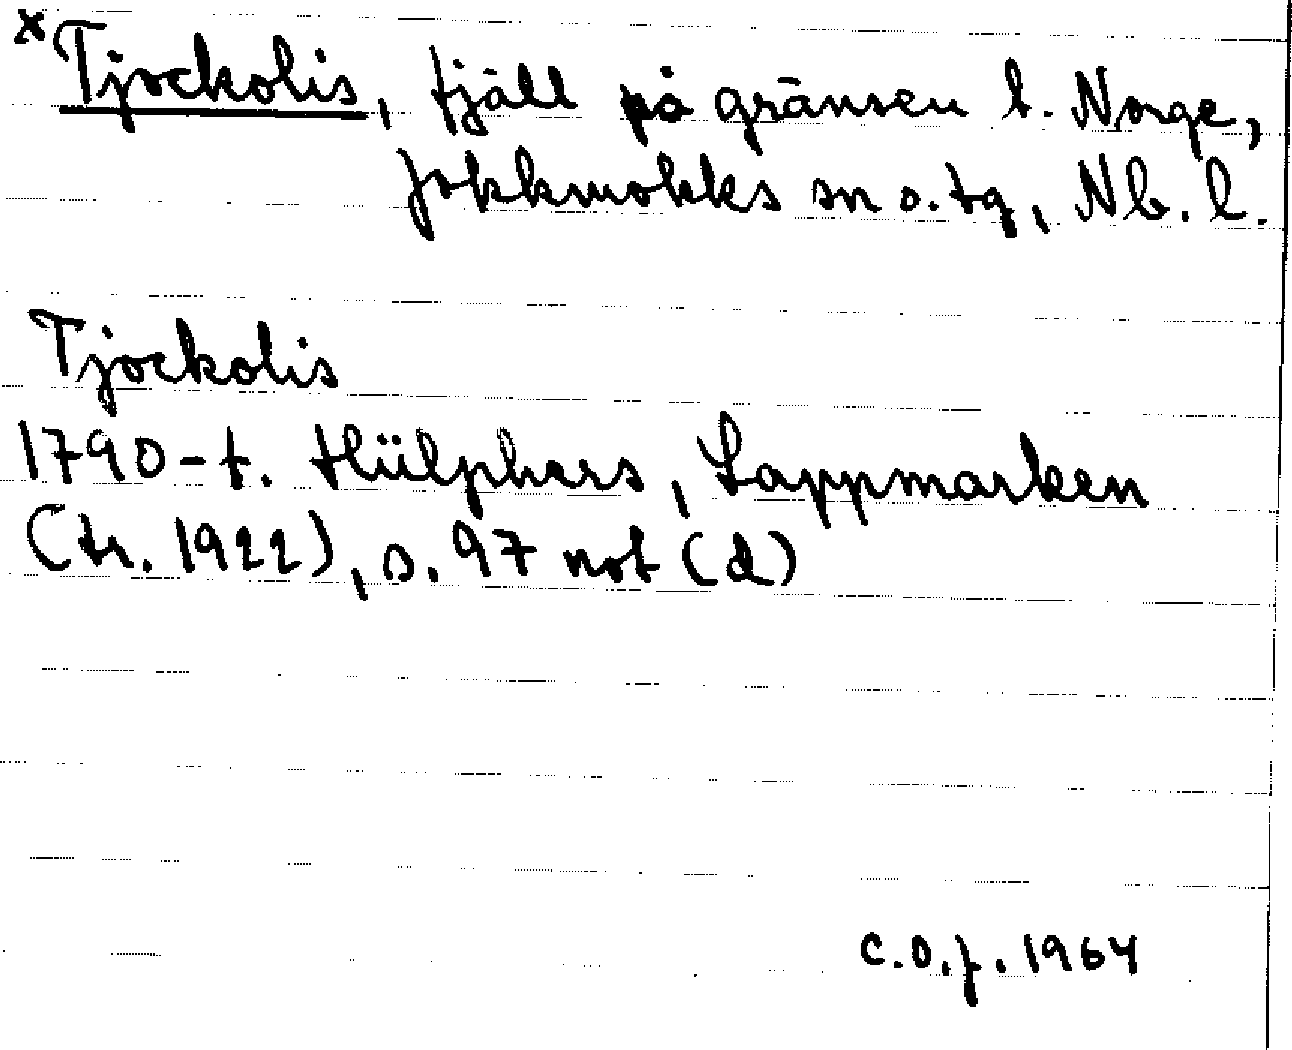 x Tjockolis, fjäll på gränsen t. Norge,
Jokkmokks sn o. tg, Nb. l.
Tjockolis
1790-t. Hülphers, Lappmarken
(tr. 1922), s. 97 not (d)
C.O.J. 1964